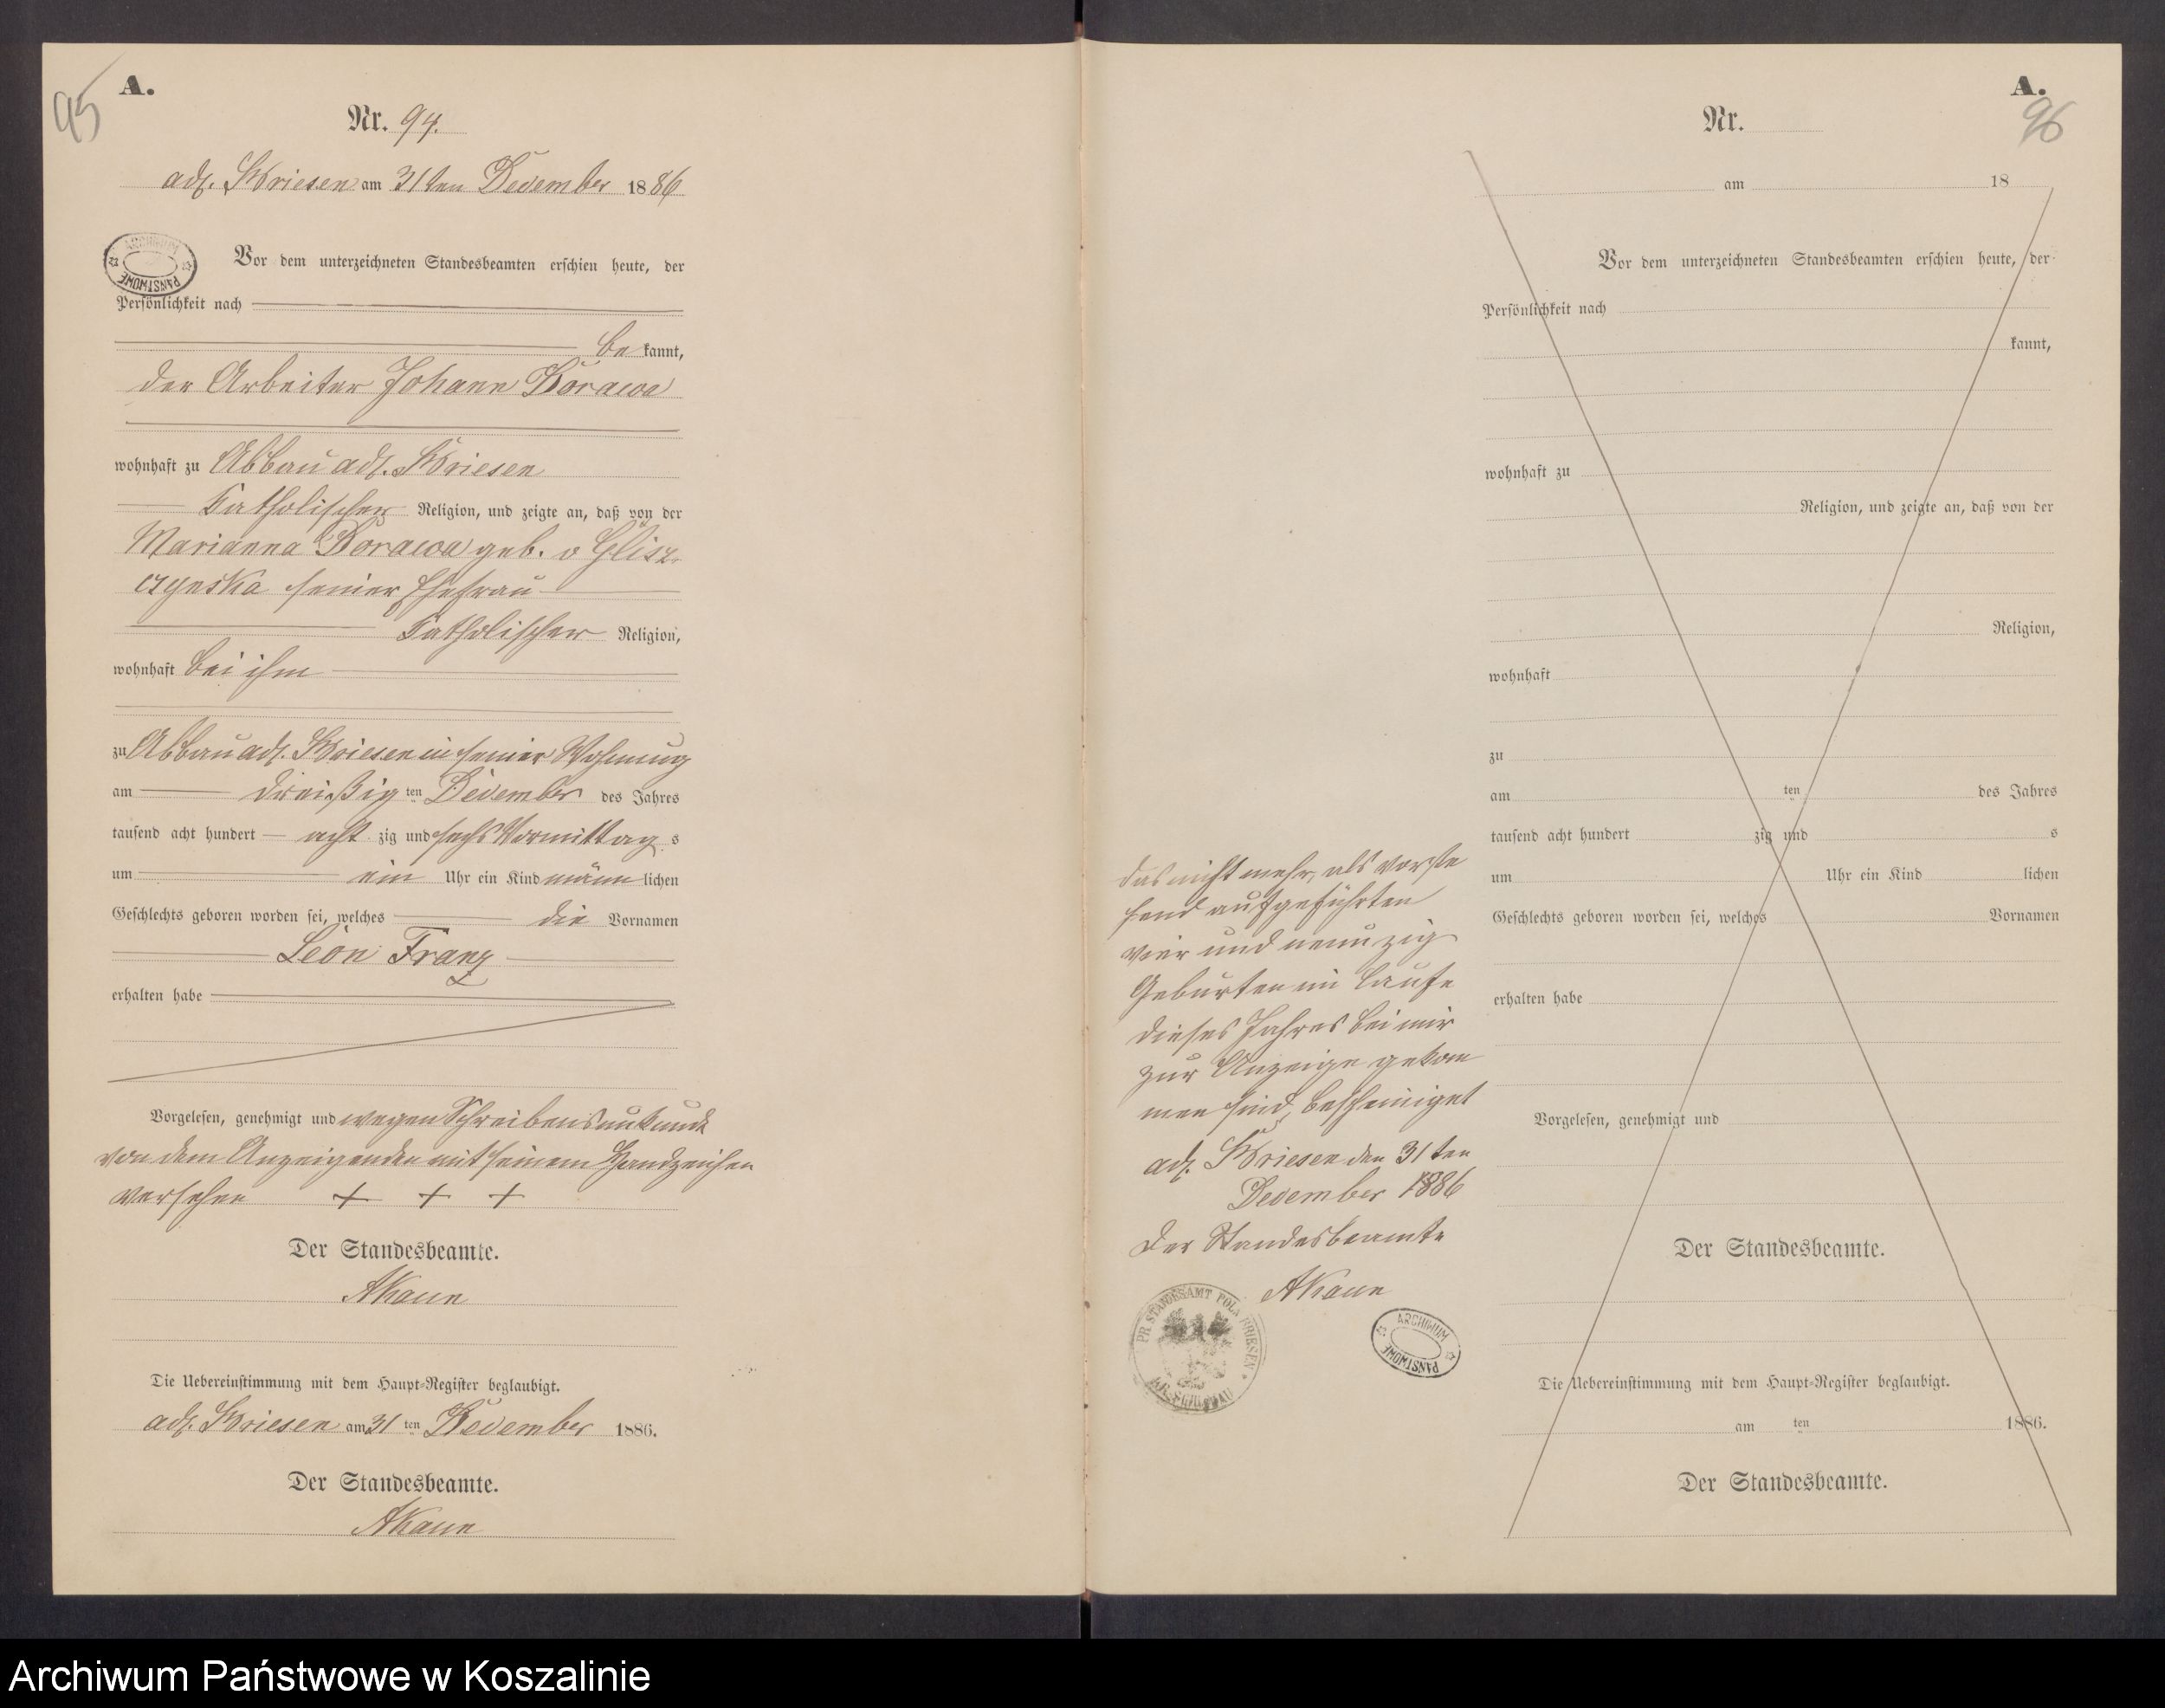 A.
95
Nr. 94.
adl. Briesen am 31ten December 1886
ARCHIWUM PAŃSTWOWE
Vor dem unterzeichneten Standesbeamten erschien heute, der
Persönlichkeit nach
be kannt,
der Arbeiter Johann Borawa
wohnhaft zu Abbau adl. Briesen
katholischer Religion, und zeigte an, daß von der
Marianna Borawa geb. v Glisz-
czynska seiner Ehefrau
katholischer Religion,
wohnhaft bei ihm
zu Abbau adl. Briesen in seiner Wohnung
am dreißig ten December des Jahres
tausend acht hundert acht zig und sechs Vormittag s
um ein Uhr ein Kind männ lichen
Geschlechts geboren worden sei, welches die Vornamen
Leon Franz
erhalten habe
Vorgelesen, genehmigt und wegen Schreibensunkunde
von dem Anzeigenden mit seinem Handzeichen
versehen + + +
Der Standesbeamte.
AKaun
Die Uebereinstimmung mit dem Haupt-Register beglaubigt.
adl. Briesen am 31 ten December 1886.
Der Standesbeamte.
AKaun
das nicht mehr, als vorste
hend aufgeführten
vier und neunzig
Geburten im Laufe
dieses Jahres bei mir
zur Anzeige gekom
men sind, bescheiniget
adl. Briesen den 31ten
December 1886
Der Standesbeamte
AKaun
PR. STANDESAMT POLN. BRIESEN
KR. SCHLOCHAU
ARCHIWUM PAŃSTWOWE
A.
96
Nr.
am 18
Vor dem unterzeichneten Standesbeamten erschien heute, der
Persönlichkeit nach
kannt,
wohnhaft zu
Religion, und zeigte an, daß von der
Religion,
wohnhaft
zu
am ten des Jahres
tausend acht hundert zig und s
um Uhr ein Kind lichen
Geschlechts geboren worden sei, welches Vornamen
erhalten habe
Vorgelesen, genehmigt und
Der Standesbeamte.
Die Uebereinstimmung mit dem Haupt-Register beglaubigt.
am ten 1886.
Der Standesbeamte.
Archiwum Państwowe w Koszalinie